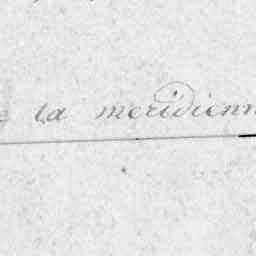 la meridienn